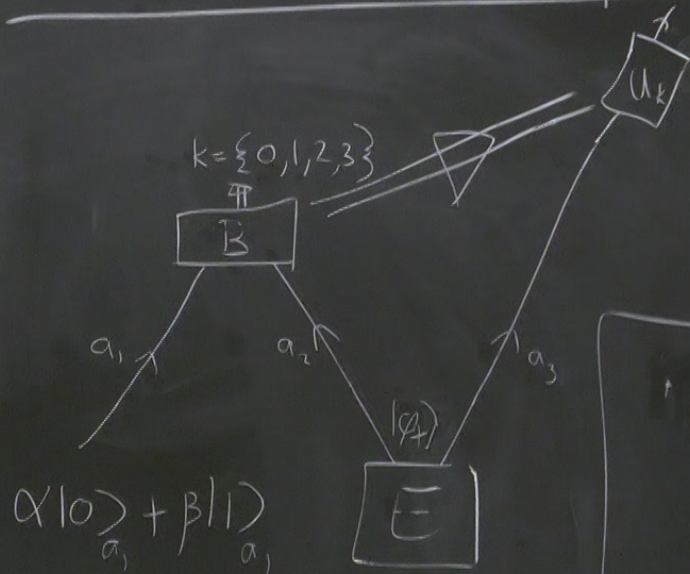 U_k
k={0,1,2,3}
B
a_1
a_2
a_3
|φ_+⟩
E
α|0⟩_{a_1} + β|1⟩_{a_1}